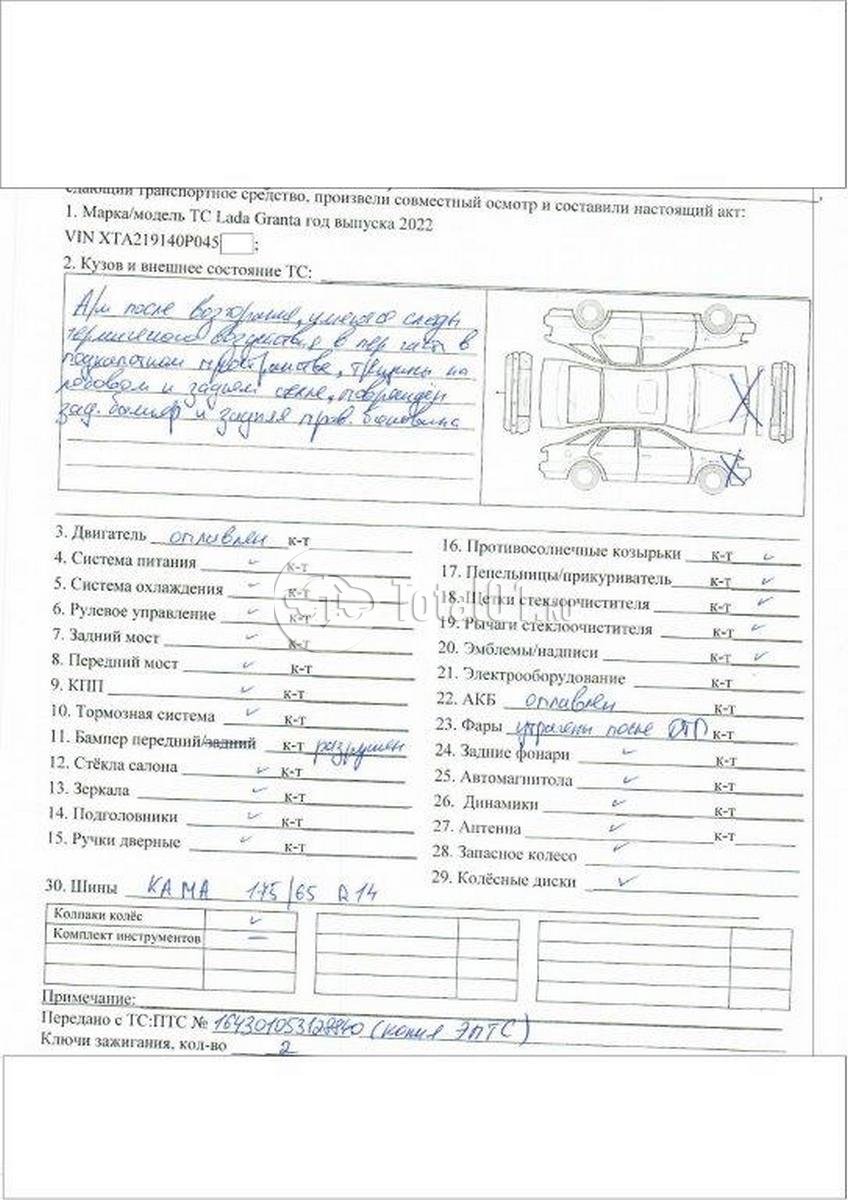 сдающий транспортное средство, произвели совместный осмотр и составили настоящий акт:
1. Марка/модель ТС Lada Granta год выпуска 2022
VIN XTA219140P045 ;
2. Кузов и внешнее состояние ТС:
А/м после возгорания, имеются следы
термического воздействия в пер части в
подкапотном пространстве, трещины на
лобовом и заднем стекле, поврежден
зад. бампер и задняя прав. боковина
3. Двигатель оплавлен к-т
4. Система питания ✓ к-т
5. Система охлаждения ✓ к-т
6. Рулевое управление ✓ к-т
7. Задний мост ✓ к-т
8. Передний мост ✓ к-т
9. КПП ✓ к-т
10. Тормозная система ✓ к-т
11. Бампер передний/задний к-т разрушен
12. Стёкла салона ✓ к-т
13. Зеркала ✓ к-т
14. Подголовники ✓ к-т
15. Ручки дверные ✓ к-т
16. Противосолнечные козырьки к-т ✓
17. Пепельницы/прикуриватель к-т ✓
18. Щетки стеклоочистителя к-т ✓
19. Рычаги стеклоочистителя к-т ✓
20. Эмблемы/надписи к-т ✓
21. Электрооборудование к-т
22. АКБ оплавлен к-т
23. Фары утрачены после ДТП к-т
24. Задние фонари ✓ к-т
25. Автомагнитола ✓ к-т
26. Динамики ✓ к-т
27. Антенна ✓ к-т
28. Запасное колесо ✓
29. Колёсные диски ✓
30. Шины КАМА 175/65 R14
Колпаки колёс ✓
Комплект инструментов –
Примечание:
Передано с ТС:ПТС № 164301053128840 (копия ЭПТС)
Ключи зажигания, кол-во 2
Total01.ru